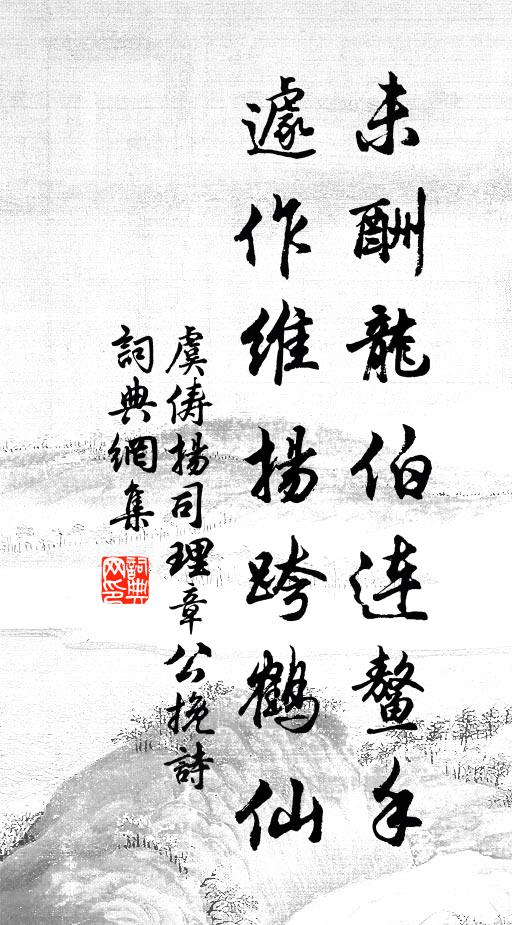 未酬龍伯連鰲手
遽作維揚跨鶴仙
虞儔揚司理章公挽詩
詞典網集
詞典网印